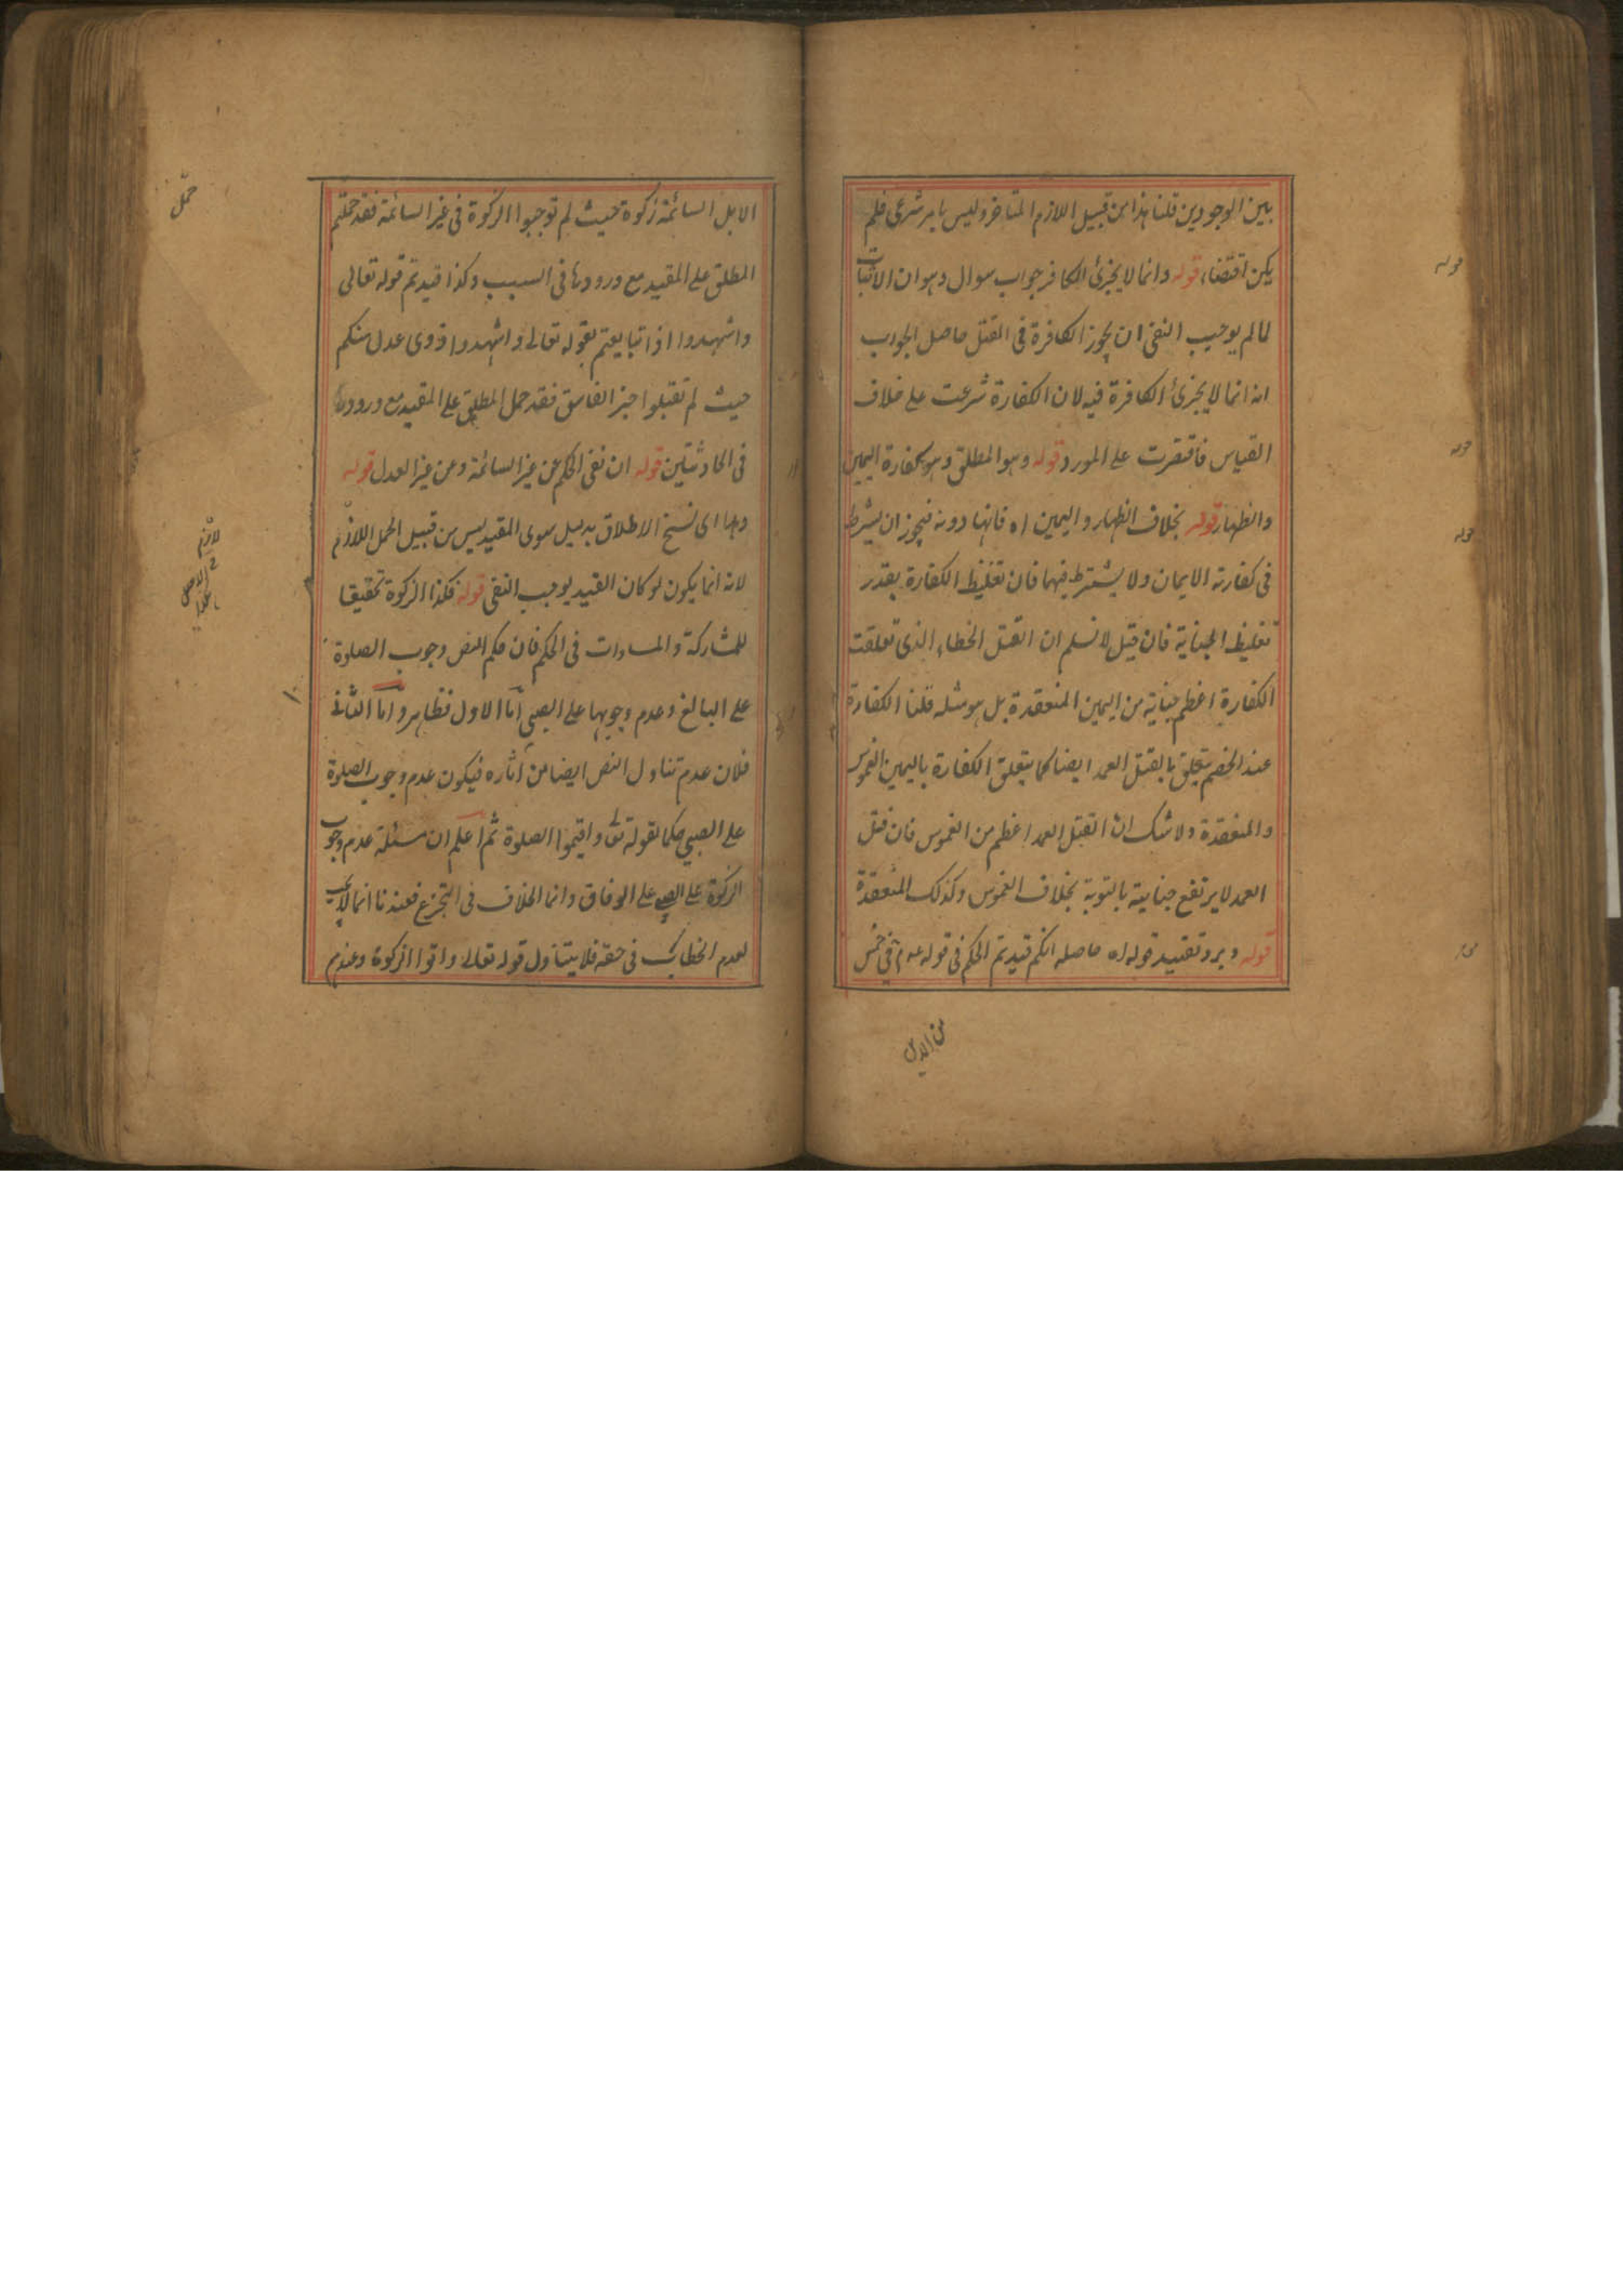 بين الوجودين قلنا هذا من قبيل اللازم المتاخر وليس بامر شرعى فلم
يكن اقتضاء قوله وانما لا يجزئ الكافر جواب سوال وهو ان الاثبات
لما لم يوجب النفى ان يجوز الكافرة فى القتل حاصل الجواب
انه انما لا يجزئ الكافرة فيه لان الكفارة شرعت على خلاف
القياس فاقتصرت على المورد قوله وهو المطلق وهو كفارة اليمين
والظهار قوله بخلاف الظهار واليمين اه فانها دونه فيجوز ان يشترط
فى كفارته الايمان ولا يشترط فيهما فان تغليظ الكفارة بقدر
تغليظ الجناية فان قيل لا نسلم ان القتل الخطاء الذى تعلقت
الكفارة اعظم جناية من اليمين المنعقدة بل هو مثله قلنا الكفارة
عند الخصم يتعلق بالقتل العمد ايضا كما يتعلق الكفارة باليمين الغموس
والمنعقدة ولا شك ان القتل العمد اعظم من الغموس فان قتل
العمد لا يرتفع جنايته بالتوبة بخلاف الغموس وكذلك المنعقدة
قوله ويرد تقييد قوله اه حاصله انكم قيدتم الحكم فى قوله عم فى خمس
من الابل
قوله
قوله
قوله
الابل السائمة زكوة حيث لم توجبوا الزكوة فى غير السائمة فقد حملتم
المطلق على المقيد مع ورودها فى السبب وكذا قيدتم قوله تعالى
واشهدوا اذا تبايعتم بقوله تعالى واشهدوا ذوى عدل منكم
حيث لم تقبلوا خبر الفاسق فقد حمل المطلق على المقيد مع ورودها
فى الحادثتين قوله ان نفى الحكم عن غير السائمة وعن غير العدل قوله
وهما اى نسخ الاطلاق بدليل سوى المقيد ليس من قبيل الحمل اللازم
لانه انما يكون لو كان القيد يوجب النفى قوله فكذا الزكوة تحقيقا
للمشاركة والمساوات فى الحكم فان حكم النص وجوب الصلوة
على البالغ وعدم وجوبها على الصبى اما الاول فظاهر واما الثانى
فلان عدم تناول النص ايضا من اثاره فيكون عدم وجوب الصلوة
على الصبى حكما لقوله تعالى واقيموا الصلوة ثم اعلم ان مسئلة عدم وجوب
الزكوة على الصبى على الوفاق وانما الخلاف فى التخريج فعندنا انما لا يجب
لعدم الخطاب فى حقه فلا يتناول قوله تعالى واتوا الزكوة وعندهم
حمل
لازم